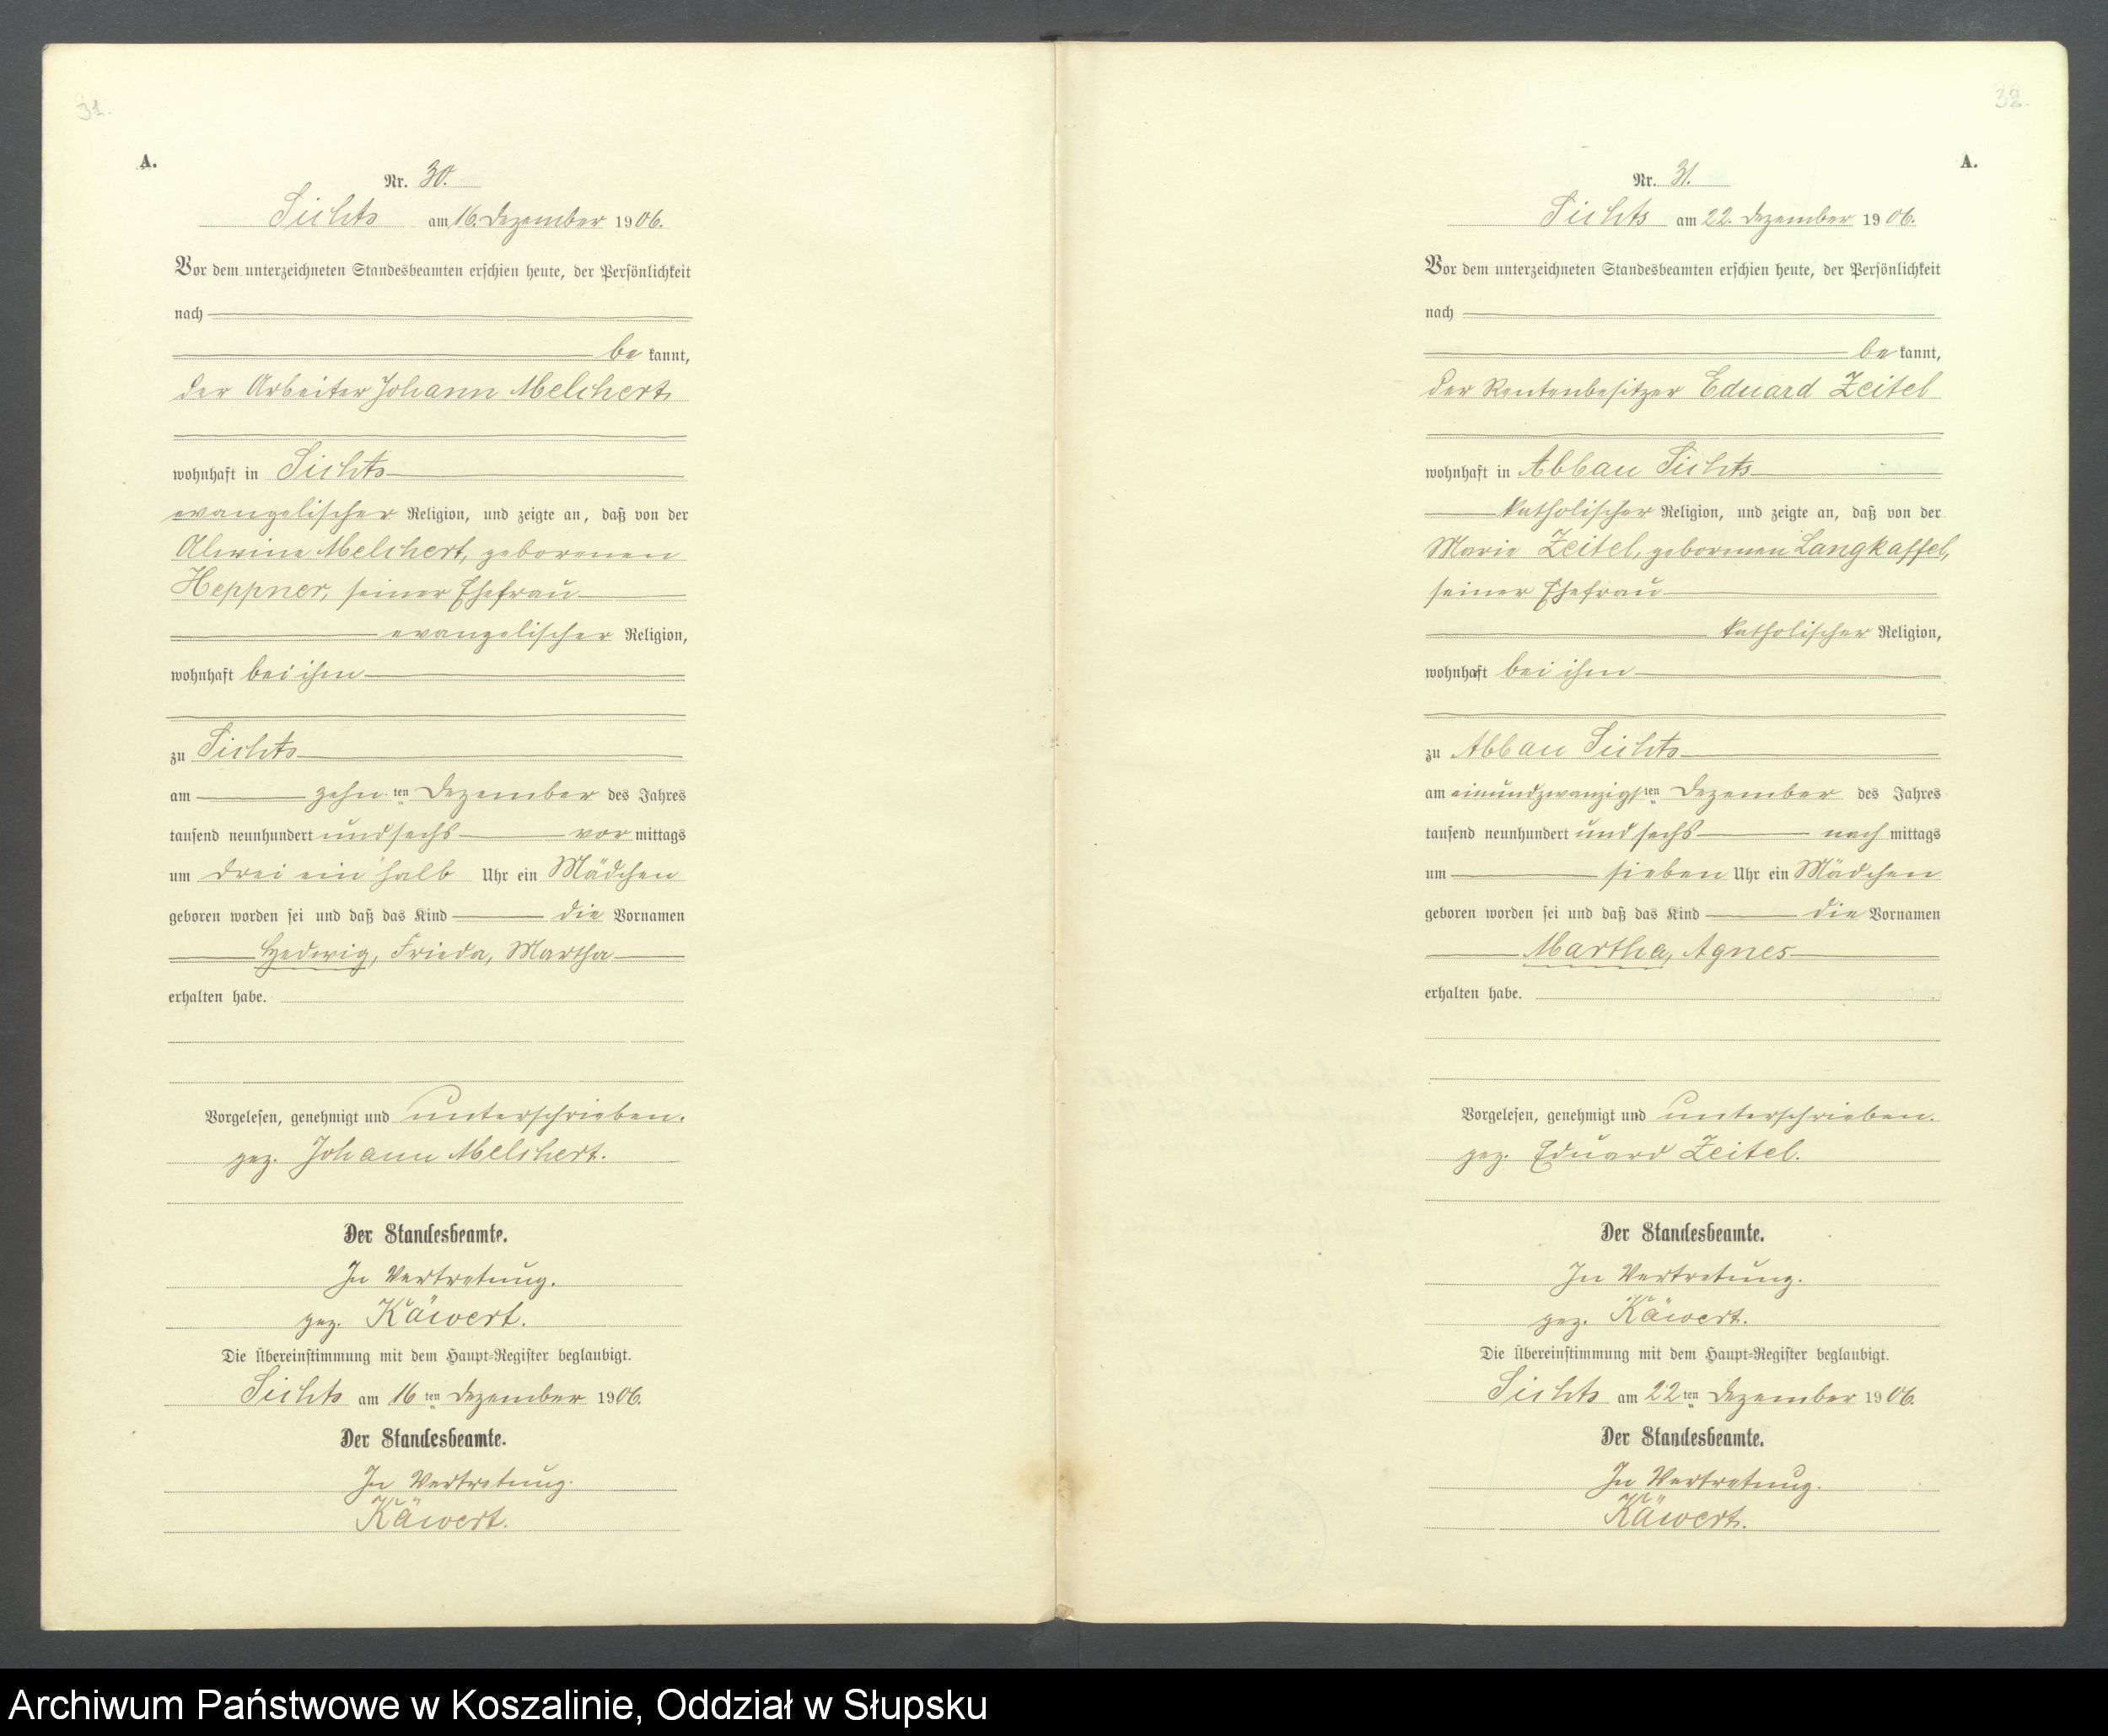 31.
A.
Nr. 30.
Sichts am 16. Dezember 1906.
Vor dem unterzeichneten Standesbeamten erschien heute, der Persönlichkeit
nach
be kannt,
der Arbeiter Johann Melchert
wohnhaft in Sichts
evangelischer Religion, und zeigte an, daß von der
Alwine Melchert, geborenen
Heppner, seiner Ehefrau
evangelischer Religion,
wohnhaft bei ihm
zu Sichts
am zehn ten Dezember des Jahres
tausend neunhundert und sechs vor mittags
um drei ein halb Uhr ein Mädchen
geboren worden sei und daß das Kind die Vornamen
Hedwig, Frieda, Martha
erhalten habe.
Vorgelesen, genehmigt und unterschrieben.
gez. Johann Melchert.
Der Standesbeamte.
In Vertretung.
gez. Käwert.
Die Übereinstimmung mit dem Haupt-Register beglaubigt.
Sichts am 16 ten Dezember 1906.
Der Standesbeamte.
In Vertretung.
Käwert.
32.
A.
Nr. 31.
Sichts am 22. Dezember 1906.
Vor dem unterzeichneten Standesbeamten erschien heute, der Persönlichkeit
nach
be kannt,
der Rentenbesitzer Eduard Zeitel
wohnhaft in Abbau Sichts
katholischer Religion, und zeigte an, daß von der
Marie Zeitel, geborenen Langkaffel,
seiner Ehefrau
katholischer Religion,
wohnhaft bei ihm
zu Abbau Sichts
am einundzwanzigsten Dezember des Jahres
tausend neunhundert und sechs nach mittags
um sieben Uhr ein Mädchen
geboren worden sei und daß das Kind die Vornamen
Martha, Agnes
erhalten habe.
Vorgelesen, genehmigt und unterschrieben.
gez. Eduard Zeitel.
Der Standesbeamte.
In Vertretung.
gez. Käwert.
Die Übereinstimmung mit dem Haupt-Register beglaubigt.
Sichts am 22 ten Dezember 1906.
Der Standesbeamte.
In Vertretung.
Käwert.
Archiwum Państwowe w Koszalinie, Oddział w Słupsku